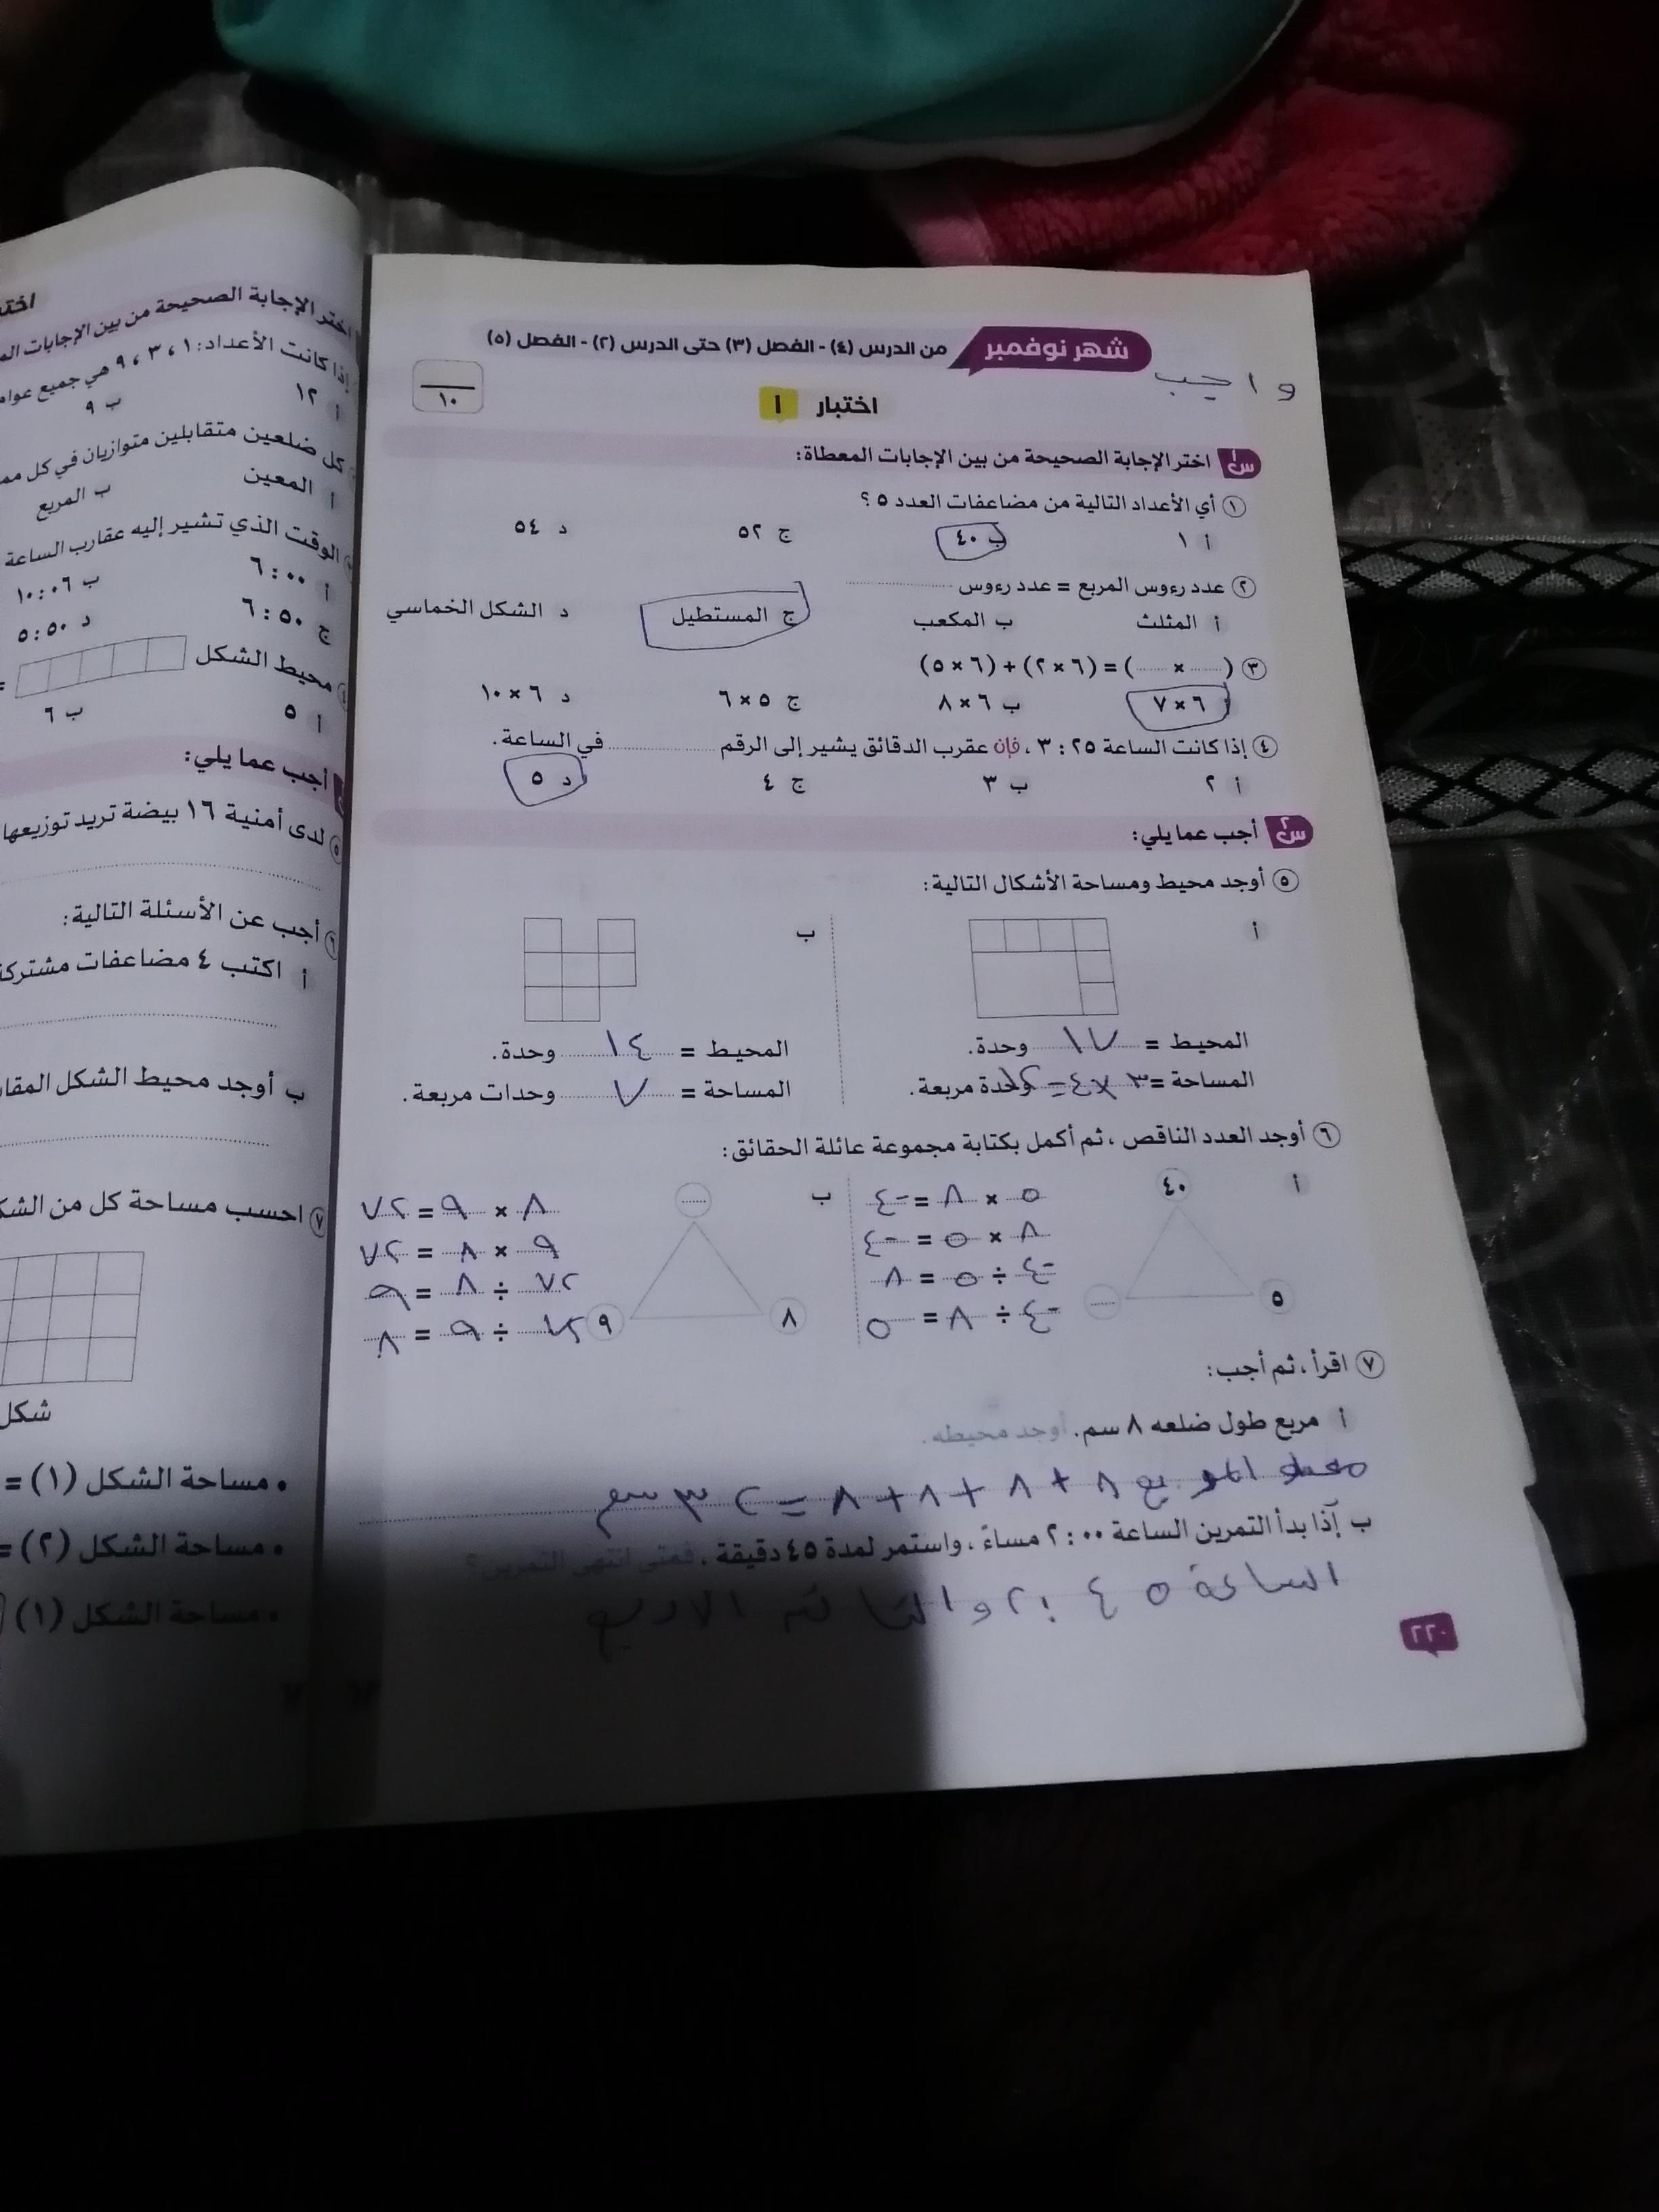 شهر نوفمبر
من الدرس (٤) - الفصل (٣) حتى الدرس (٢) - الفصل (٥)
واجب
١٠
اختبار ا
س١ اختر الإجابة الصحيحة من بين الإجابات المعطاة:
١ أي الأعداد التالية من مضاعفات العدد ٥ ؟
أ ١ ب ٤٠ ج ٥٢ د ٥٤
٢ عدد رءوس المربع = عدد رءوس ..........
أ المثلث ب المكعب ج المستطيل د الشكل الخماسي
٣ (...... × ......) = (٦ × ٢) + (٦ × ٥)
أ ٦ × ٧ ب ٦ × ٨ ج ٥ × ٦ د ٦ × ١٠
٤ إذا كانت الساعة ٢٥ : ٣ ، فإن عقرب الدقائق يشير إلى الرقم .......... في الساعة.
أ ٢ ب ٣ ج ٤ د ٥
س٢ أجب عما يلي:
٥ أوجد محيط ومساحة الأشكال التالية:
أ
المحيط = ١٧ وحدة.
المساحة = ٣ × ٤ = وحدة مربعة.
ب
المحيط = ١٤ وحدة.
المساحة = ٧ وحدات مربعة.
٦ أوجد العدد الناقص ، ثم أكمل بكتابة مجموعة عائلة الحقائق:
أ
٤٠
٥
٥ × ٨ = ٤٠
٨ × ٥ = ٤٠
٤٠ ÷ ٥ = ٨
٤٠ ÷ ٨ = ٥
ب
٨
٩
٨ × ٩ = ٧٢
٩ × ٨ = ٧٢
٧٢ ÷ ٨ = ٩
٧٢ ÷ ٩ = ٨
٧ اقرأ ، ثم أجب:
أ مربع طول ضلعه ٨ سم. أوجد محيطه.
محيط المربع ٨ + ٨ + ٨ + ٨ = ٣٢ سم
ب إذا بدأ التمرين الساعة ٠٠ : ٢ مساءً ، واستمر لمدة ٤٥ دقيقة ، فمتى انتهى التمرين؟
الساعة ٤٥ : ٢
٢٢٠
اختر الإجابة الصحيحة من بين الإجابات
إذا كانت الأعداد: ١ ، ٣ ، ٩ هي جميع
أ ١٢ ب ٩
كل ضلعين متقابلين متوازيان في كل
أ المعين ب المربع
الوقت الذي تشير إليه عقارب الساعة
أ ٦:٠٠ ب ١٠:٠٦
ج ٦:٥٠ د ٥:٥٠
محيط الشكل =
أ ٥ ب ٦
أجب عما يلي:
٥ لدى أمنية ١٦ بيضة تريد توزيعها
٦ أجب عن الأسئلة التالية:
أ اكتب ٤ مضاعفات مشتركة
ب أوجد محيط الشكل
٧ احسب مساحة كل من
شكل
• مساحة الشكل (١) =
• مساحة الشكل (٢) =
• مساحة الشكل (١)